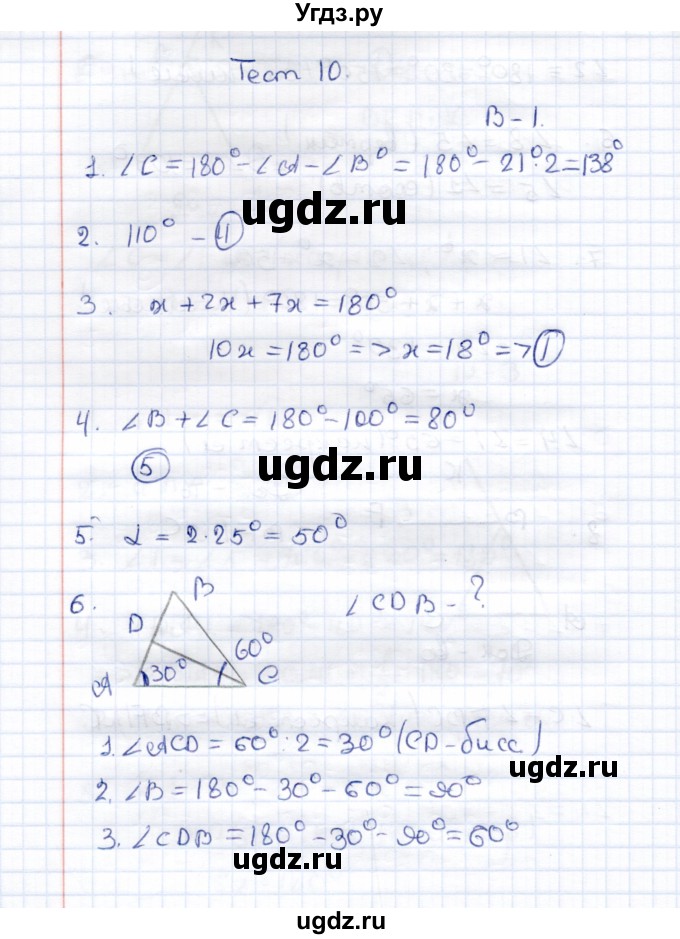 Угдз.ру
Тест 10.
В-1.
1. ∠C = 180° - ∠A - ∠B° = 180° - 21°·2 = 138°
ugdz.ru
2. 110° - ①
3. x + 2x + 7x = 180°
10x = 180° => x = 18° => ①
4. ∠B + ∠C = 180° - 100° = 80°
⑤
ugdz.ru
5. α = 2·25° = 50°
6.
B
∠CDB - ?
D
60°
A
30°
C
1. ∠ACD = 60° : 2 = 30° (CD - бисс)
ugdz.ru
2. ∠B = 180° - 30° - 60° = 90°
3. ∠CDB = 180° - 30° - 90° = 60°
ugdz.ru
ugdz.ru